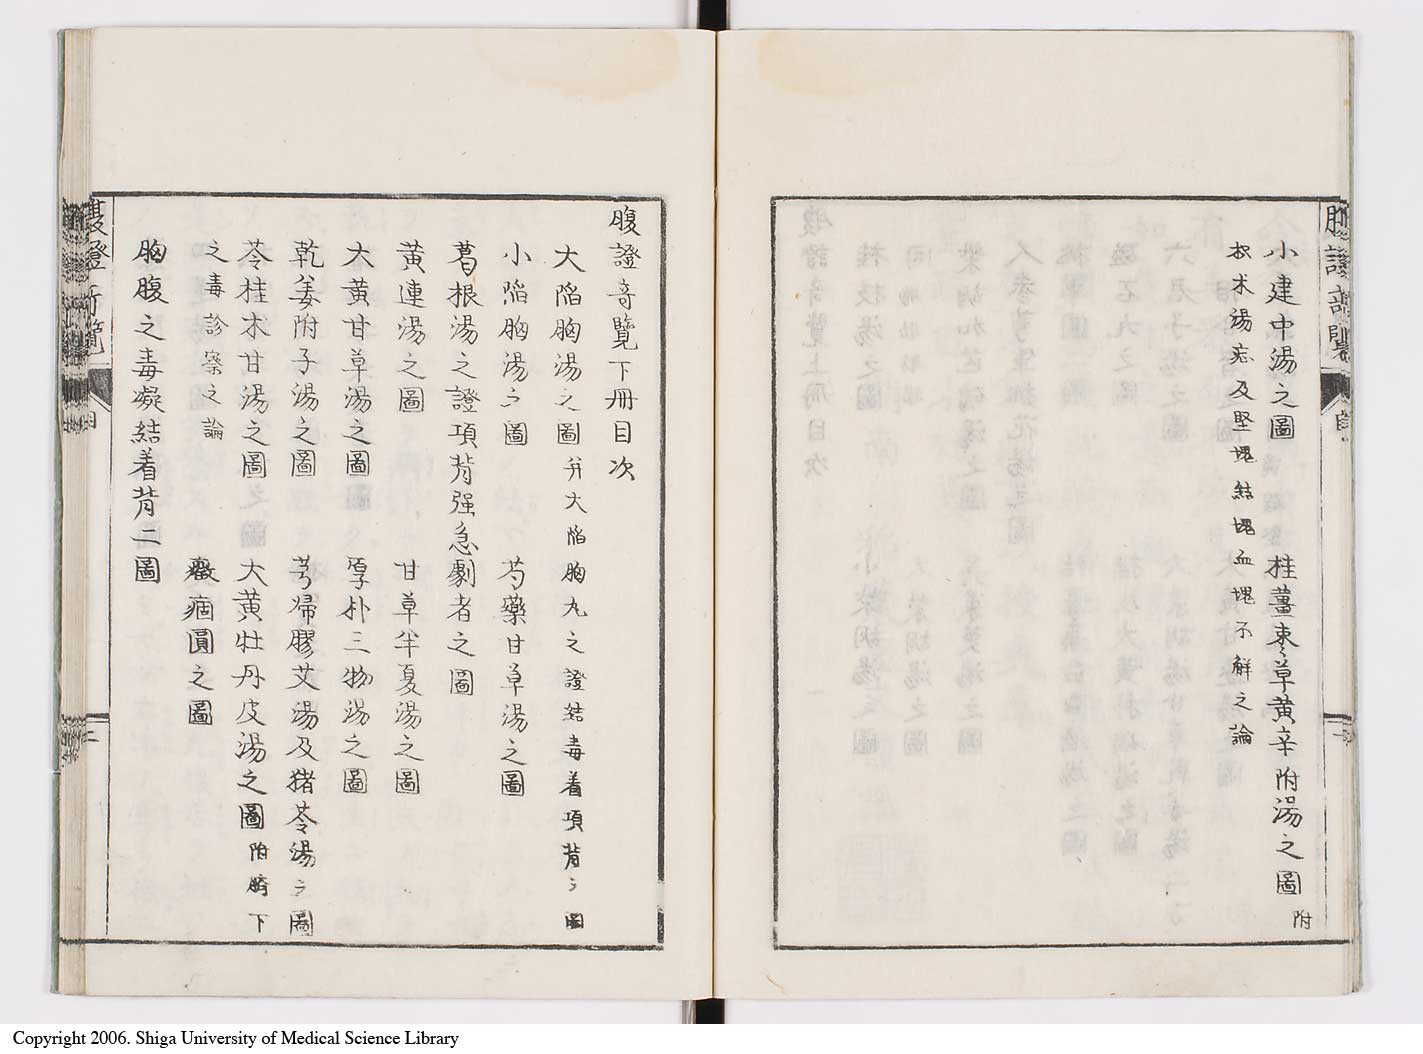 小建中湯之圖　桂薑棗草黄辛附湯之圖 附
枳朮湯症及堅塊結塊血塊不解之論
腹證奇覽下冊目次
大陷胸湯之圖 并大陷胸丸之證結毒着項背之圖
小陷胸湯之圖　芍藥甘草湯之圖
葛根湯之證項背强急劇者之圖
黄連湯之圖　甘草半夏湯之圖
大黄甘草湯之圖　厚朴三物湯之圖
乾姜附子湯之圖　芎帰膠艾湯及猪苓湯之圖
苓桂朮甘湯之圖　大黄牡丹皮湯之圖 附臍下
之毒診察之論　痼圓之圖
胸腹之毒凝結着背二圖
Copyright 2006. Shiga University of Medical Science Library